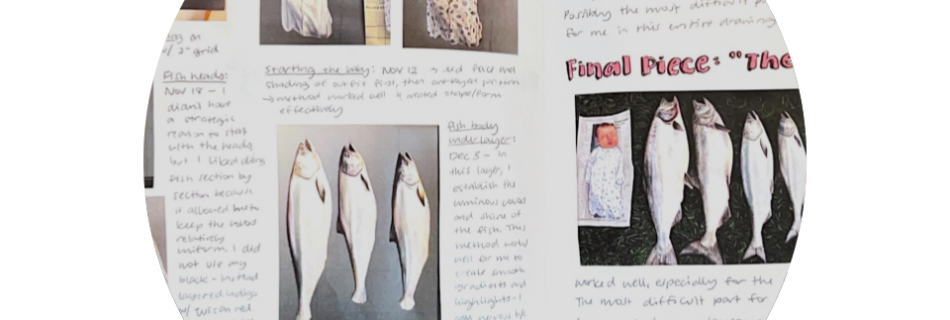 w/ 2" grid
Fish heads:
Nov 18 - I
didn't have
a strategic
reason to start
with the heads
but I liked doing
fish section by
section because
it allowed me to
keep the
relatively
uniform. I did
not use any
black - instead
layered indigo
Starting the baby: Nov 12 → did face and
shading of outfit first, then overlayed pattern
→ method worked well & created shape/form
effectively
Fish body
under layer:
Dec 3 - in
this layer, I
establish the
luminous
and shine of
the fish. This
method works
well for me to
create smooth
gradients and
highlights - I
Possibly the most difficult
for me in this entire drawing
Final Piece: "The
worked well, especially for the
The most difficult part for